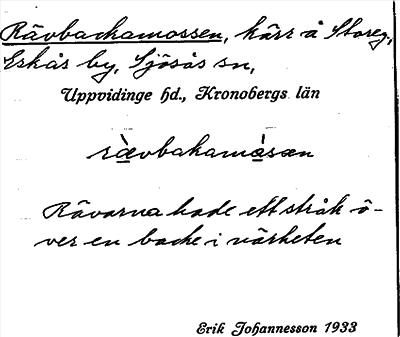 Rävbackamossen, kärr å Storeg.,
Eskås by, Sjösås sn,
Uppvidinge hd., Kronobergs län
rävbakamåsæn
Rävarna hade ett stråk ö-
ver en backe i närheten
Erik Johannesson 1933